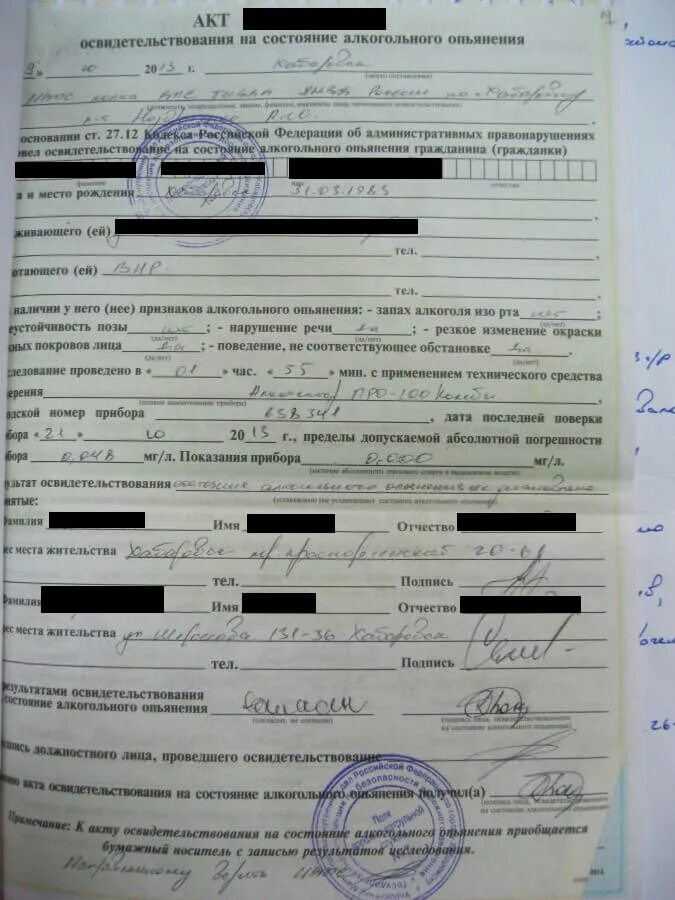 АКТ
освидетельствования на состояние алкогольного опьянения
9» 10 2013 г. Хабаровск
(место составления)
полка ДПС ГИБДД УМВД России по г. Хабаровску
(должность, подразделение, звание, фамилия, инициалы лица, проводившего освидетельствование)
основании ст. 27.12 Кодекса Российской Федерации об административных правонарушениях
вел освидетельствование на состояние алкогольного опьянения гражданина (гражданки)
фамилия имя отчество
а и место рождения Хабаровск 31.03.1983
живающего (ей)
тел.
отающего (ей) ВНР
тел.
наличии у него (нее) признаков алкогольного опьянения: - запах алкоголя изо рта нет ;
(да/нет)
еустойчивость позы нет ; - нарушение речи да ; - резкое изменение окраски
(да/нет) (да/нет)
ных покровов лица да ; - поведение, не соответствующее обстановке да .
(да/нет) (да/нет)
ледование проведено в « 01 » час. « 55 » мин. с применением технического средства
ерения Алкотектор ПРО-100 Комби
(полное наименование прибора)
одской номер прибора 638341 , дата последней поверки
бора «21» 10 2013 г., пределы допускаемой абсолютной погрешности
бора 0,048 мг/л. Показания прибора 0,000 мг/л.
(наличие абсолютного этилового спирта в выдыхаемом воздухе)
ультат освидетельствования состояние алкогольного опьянения не установлено
(установлено (не установлено) состояние алкогольного опьянения)
нятые:
Фамилия Имя Отчество
ес места жительства Хабаровск 20-61
тел. Подпись
Фамилия Имя Отчество
ес места жительства ул. 131-36 Хабаровск
тел. Подпись
результатами освидетельствования
состояние алкогольного опьянения согласен
(согласен, не согласен) (подпись лица, освидетельствованного на состояние алкогольного опьянения)
дпись должностного лица, проведшего освидетельствование
пию акта освидетельствования на состояние алкогольного опьянения получил(а)
(подпись лица, освидетельствованного на состояние алкогольного опьянения)
Примечание: К акту освидетельствования на состояние алкогольного опьянения приобщается
бумажный носитель с записью результатов исследования.